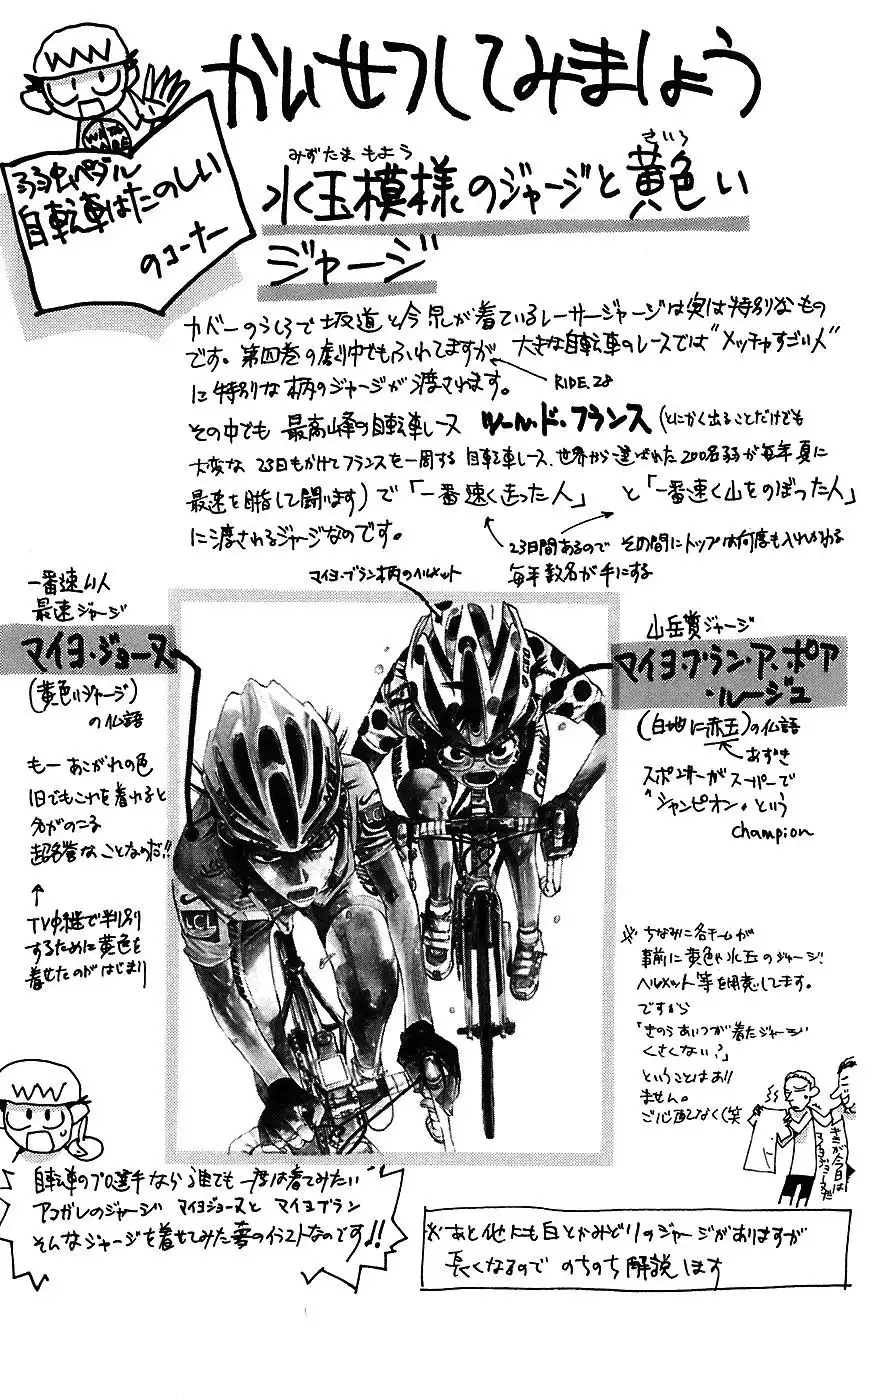 かいせつしてみましょう
弱虫ペダル
自転車はたのしい
のコーナー
みずたま もよう
きいろ
水玉模様のジャージと黄色い
ジャージ
カバーのうしろで坂道と今泉が着ているレーサージャージは実は特別なもの
です。第四巻の劇中でもふれてますが、大きな自転車のレースでは"メッチャすごい人"
に特別な柄のジャージが渡されます。
RIDE.28
その中でも 最高峰の自転車レース ツール・ド・フランス(とにかく出ることだけでも
大変な 23日もかけてフランスを一周する 自転車レース、世界から選ばれた200名弱が毎年夏に
最速を目指して闘います)で「一番速く走った人」 と「一番速く山をのぼった人」
に渡されるジャージなのです。
23日間あるので その間にトップは何度も入れかわる
毎年数名が手にする
マイヨ・ブラン柄のヘルメット
一番速い人
最速ジャージ
マイヨ・ジョーヌ
(黄色いジャージ)
の仏語
もー あこがれの色
1日でもこれを着れると
名がのこる
超名誉なことなのだ!!
TV中継で判別
するために黄色を
着せたのがはじまり
山岳賞ジャージ
マイヨ・ブラン・ア・ポア
・ルージュ
(白地に赤玉)の仏語
あずき
スポンサーがスーパーで
"シャンピオン"という
champion
LCL
※ちなみに各チームが
事前に黄色や水玉のジャージ、
ヘルメット等を用意してます。
ですから
「きのうあいつが着たジャージ
くさくない?」
ということはあり
ません。
ご心配なく(笑
キミが今日は
マイヨジョーヌだ
自転車のプロ選手なら 誰でも一度は着てみたい
アコガレのジャージ マイヨジョーヌと マイヨブラン
そんなジャージを着せてみた夢のイラストなのです!!
※あと他にも白とかみどりのジャージがありますが
長くなるので のちのち解説します